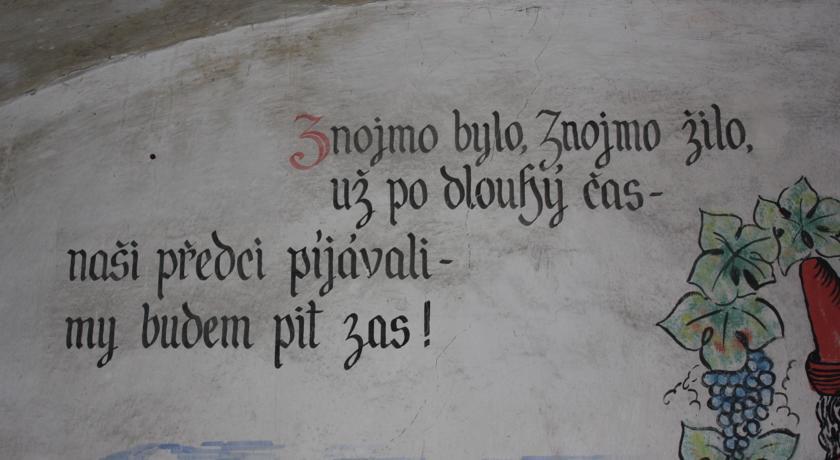 Znojmo bylo, Znojmo žilo,
už po dlouhý čas-
naši předci píjávali-
my budem pit zas!